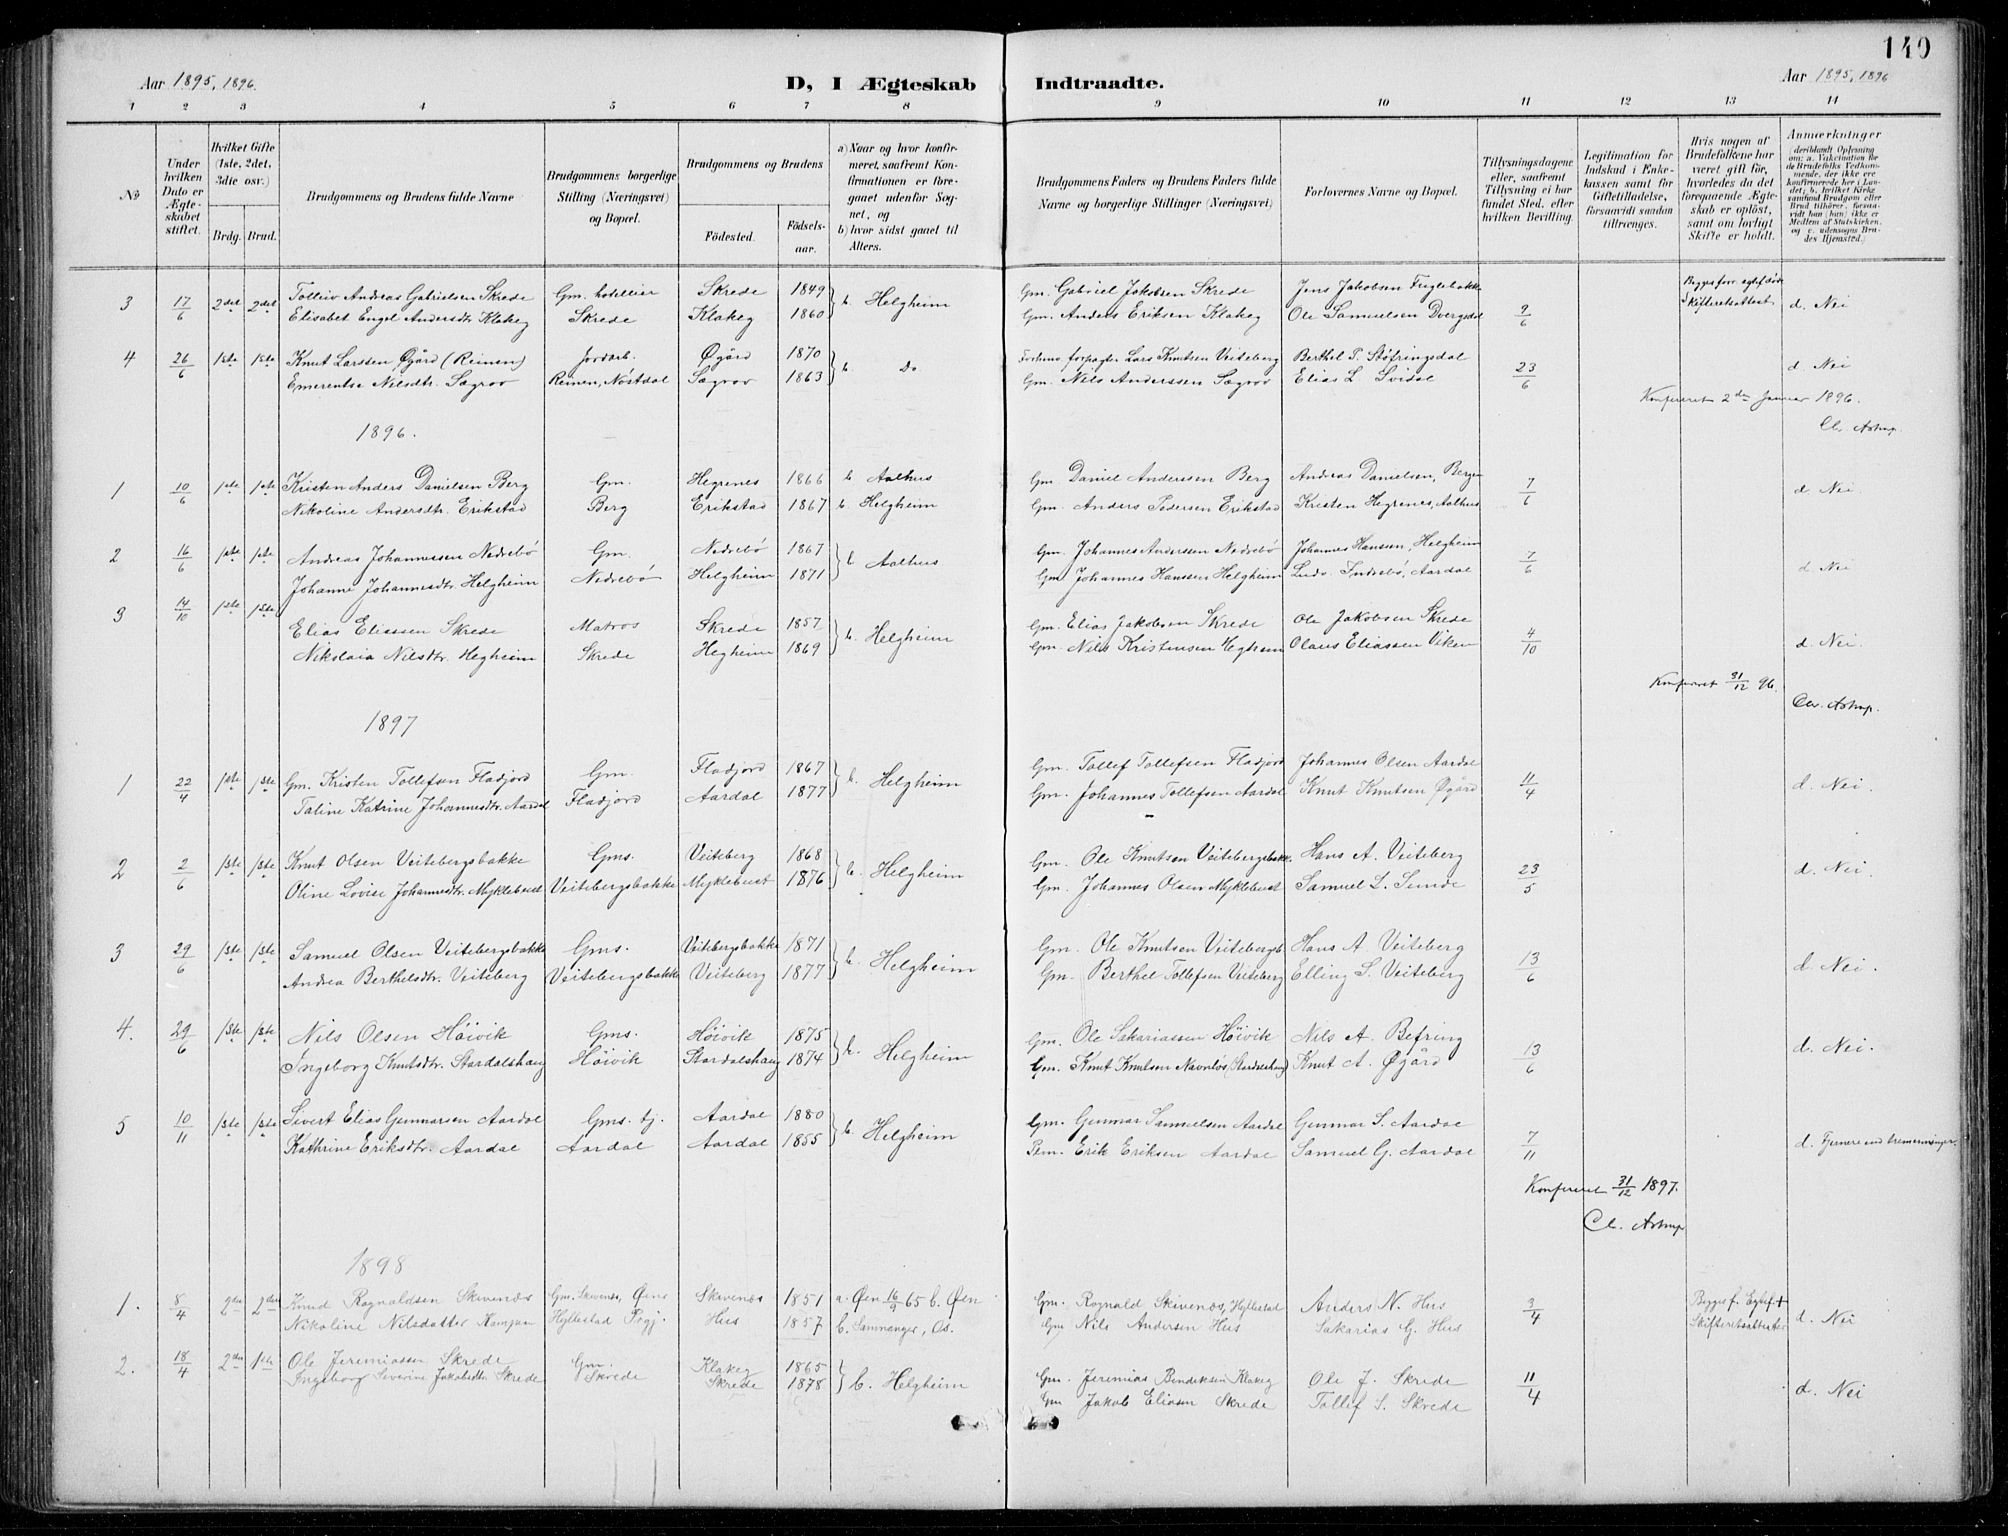 140
Aar 1895, 1896.
D, I Ægteskab Indtraadte.
Aar 1895, 1896
1 2 3 4 5 6 7 8 9 10 11 12 13 14
No
Under hvilken Dato er Ægteskabet stiftet.
Hvilket Gifte (1ste, 2det, 3die osv.)
Brdg. Brud.
Brudgommens og Brudens fulde Navne
Brudgommens borgerlige Stilling (Næringsvei) og Bopæl.
Brudgommens og Brudens
Fødested. Fødselsaar.
a) Naar og hvor konfirmeret, saafremt Konfirmationen er foregaaet udenfor Sognet, og b) hvor sidst gaaet til Alters.
Brudgommens Faders og Brudens Faders fulde Navne og borgerlige Stillinger (Næringsvei)
Forlovernes Navne og Bopæl.
Tillysningsdagene eller, saafremt Tillysning ei har fundet Sted, efter hvilken Bevilling.
Legitimation for Indskud i Enkekassen samt for Giftetilladelse, forsaavidt saadan tiltrænges.
Hvis nogen af Brudefolkene har været gift før, hvorledes da det foregaaende Ægteskab er opløst, samt om lovligt Skifte er holdt.
Anmærkninger (deriblandt Oplysning om: a. Vakcination for de Brudefolks Vedkommende, der ikke ere konfirmerede her i Landet; b. hvilket Kirkesamfund Brudgom eller Brud tilhører, forsaavidt han (hun) ikke er Medlem af Statskirken, og c. udensogns Brudes Hjemsted.)
3 17/6 2det 2det Tolleiv Andreas Gabrielsen Skrede Gm. hotelleier Skrede 1849 b. Helgheim Gm. Gabriel Jakobsen Skrede Jens Jakobsen Fuglebakke Begges forr. egtef. døde
Elisabet Engel Andersdtr. Klakeg Skrede Klakeg 1860 Gm. Anders Eriksen Klakeg Ole Samuelsen Dvergsdal 9/6 Skifteretsattest d. Nei
4 26/6 1ste 1ste Knut Larssen Øgård (Reinen) Jordarb. Øgård 1870 b. Do Forhenv. forpagter Lars Knutsen Veiteberg Berthel P. Støfringsdal
Emerentse Nilsdtr. Sægrov Reinen, Nøstdal Sægrov 1863 Gm. Nils Anderssen Sægrov Elias L. Svidal 23/6 d. Nei
Konfereret 2den Januar 1896.
Chr. Astrup.
1896.
1 10/6 1ste 1ste Kristen Anders Danielsen Berg Gm. Hegrenes 1866 b Aalhus Gm Daniel Anderssen Berg Andreas Danielsen, Bergen
Nikoline Andersdtr. Erikstad Berg Erikstad 1867 b Helgheim Gm. Anders Pedersen Erikstad Kristen Hegrenes, Aalhus 7/6 d Nei.
2 16/6 1ste 1ste Andreas Johannessen Nedrebø Gm. Nedrebø 1867 b Aalhus Gm. Johannes Anderssen Nedrebø Johannes Hanssen, Helgheim
Johanne Johannesdtr. Helgheim Nedrebø Helgheim 1871 Gm Johannes Hanssen Helgheim Ludv. Indrebø, Aardal 7/6 d. Nei
3 14/10 1ste 1ste Elias Eliassen Skrede Matros Skrede 1857 b. Helgheim Gm. Elias Jakobsen Skrede Ole Jakobsen Skrede
Nikolaia Nilsdtr. Hegheim Skrede Hegheim 1869 Gm. Nils Kristensen Hegheim Olaus Eliassen Viken 4/10 d. Nei.
Konfereret 31/12 96.
Chr. Astrup.
1897
1 22/4 1ste 1ste Gm. Kristen Tollefsen Fladjord Gm. Fladjord 1867 b. Helgheim Gm. Tollef Tollefsen Fladjord Johannes Olsen Aardal
Taline Katrine Johannesdtr. Aardal Fladjord Aardal 1877 Gm. Johannes Tollefsen Aardal Knut Knutsen Øgård 11/4 d. Nei.
2 2/6 1ste 1ste Knut Olsen Veitebergsbakke Gms. Veiteberg 1868 b. Helgheim Gm. Ole Knutsen Veitebergsbakk. Hans A. Veiteberg
Oline Lovise Johannesdtr. Myklebust Veitebergsbakke Myklebust 1876 Gm. Johannes Olsen Myklebust Samuel L. Sunde 23/5 d. Nei.
3 29/6 1ste 1ste Samuel Olsen Veitebergsbakke Gms. Veitebergsbakke 1871 b. Helgheim Gm. Ole Knutsen Veitebergsb. Hans A Veiteberg
Andrea Berthelsdtr. Veiteberg Veitebergsbakke Veiteberg 1877 Gm. Berthel Tollefsen Veiteberg Elling S. Veiteberg 13/6 d. Nei.
4. 29/6 1ste 1ste Nils Olsen Høivik Gms. Høivik 1875 b. Helgheim Gm. Ole Sakariassen Høivik Nils A. Befring
Ingeborg Knutsdtr. Stardalshaug Høivik Stardalshaug 1874 Gm. Knut Knutsen Navnløs (Stardalshaug) Knut A. Øgård 13/6 d. Nei.
5 10/11 1ste 1ste Sivert Elias Gunnarsen Aardal Gms. tj. Aardal 1880 b. Helgheim Gm. Gunnar Samuelsen Aardal Gunnar S. Aardal
Kathrine Eriksdtr. Aardal Aardal Aardal 1855 Pem. Erik Eriksen Aardal Samuel G. Aardal 7/11 d. Fjernere end tremenninger.
Konfereret 31/12 1897.
Ch. Astrup
1898
1. 8/4 2det 2det Knud Rognaldsen Skivenes Gm. Skivenes, Øens Skivenes 1851 a. Øen 16/9 65 b. Øen Gm. Rognald Skivenes, Hyllestad Anders N. Hus Begges f. Egtef. +
Nikoline Nilsdatter Kampen Hyllestad Prgj. Hus 1857 b. Samnanger, Os. Gm Nils Andersen Hus Sakarias G. Hus 3/4 Skifteretsattester d. Nei
2. 18/4 2det 1ste Ole Jeremiassen Skrede Gm. Klakeg 1865 b. Helgheim Gm. Jeremias Bendiksen Klakeg Ole J. Skrede
Ingeborg Severine Jakobsdtr Skrede Skrede Skrede 1878 Gm Jakob Eliasen Skrede Tollef S. Skrede 11/4 d. Nei